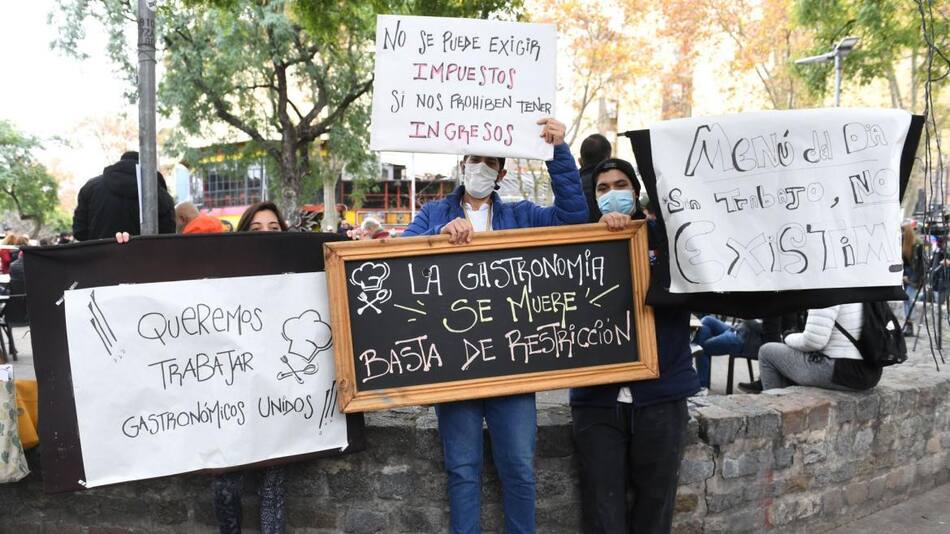 NO SE PUEDE EXIGIR
IMPUESTOS
SI NOS PROHIBEN TENER
INGRESOS
QUEREMOS
TRABAJAR
GASTRONÓMICOS UNIDOS!!!
LA GASTRONOMIA
SE MUERE
BASTA DE RESTRICCIÓN
MENÚ del DIA
Sin TRABAJO, NO
EXISTIM